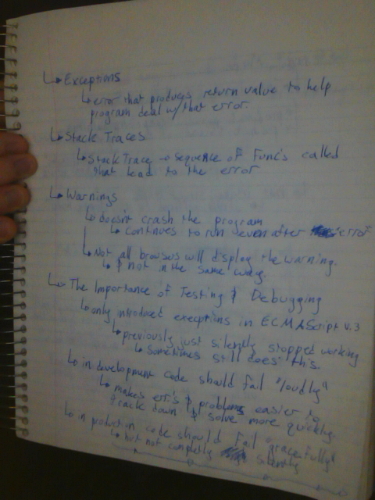 ↳ Exceptions
↳ error that produces return value to help
program deal w/ that error
↳ Stack Traces
↳ Stack Trace → sequence of func's called
that lead to the error
↳ Warnings
↳ doesn't crash the program
↳ continues to run even after error
↳ Not all browsers will display the warning.
↳ & not in the same way.
↳ The Importance of Testing & Debugging
↳ only introduced exceptions in ECMAScript v.3
↳ previously just silently stopped working
↳ sometimes still does this.
↳ in development code should fail "loudly"
↳ makes err's & problems easier to
track down & solve more quickly.
↳ in production code should fail "gracefully"
↳ but not completely silently